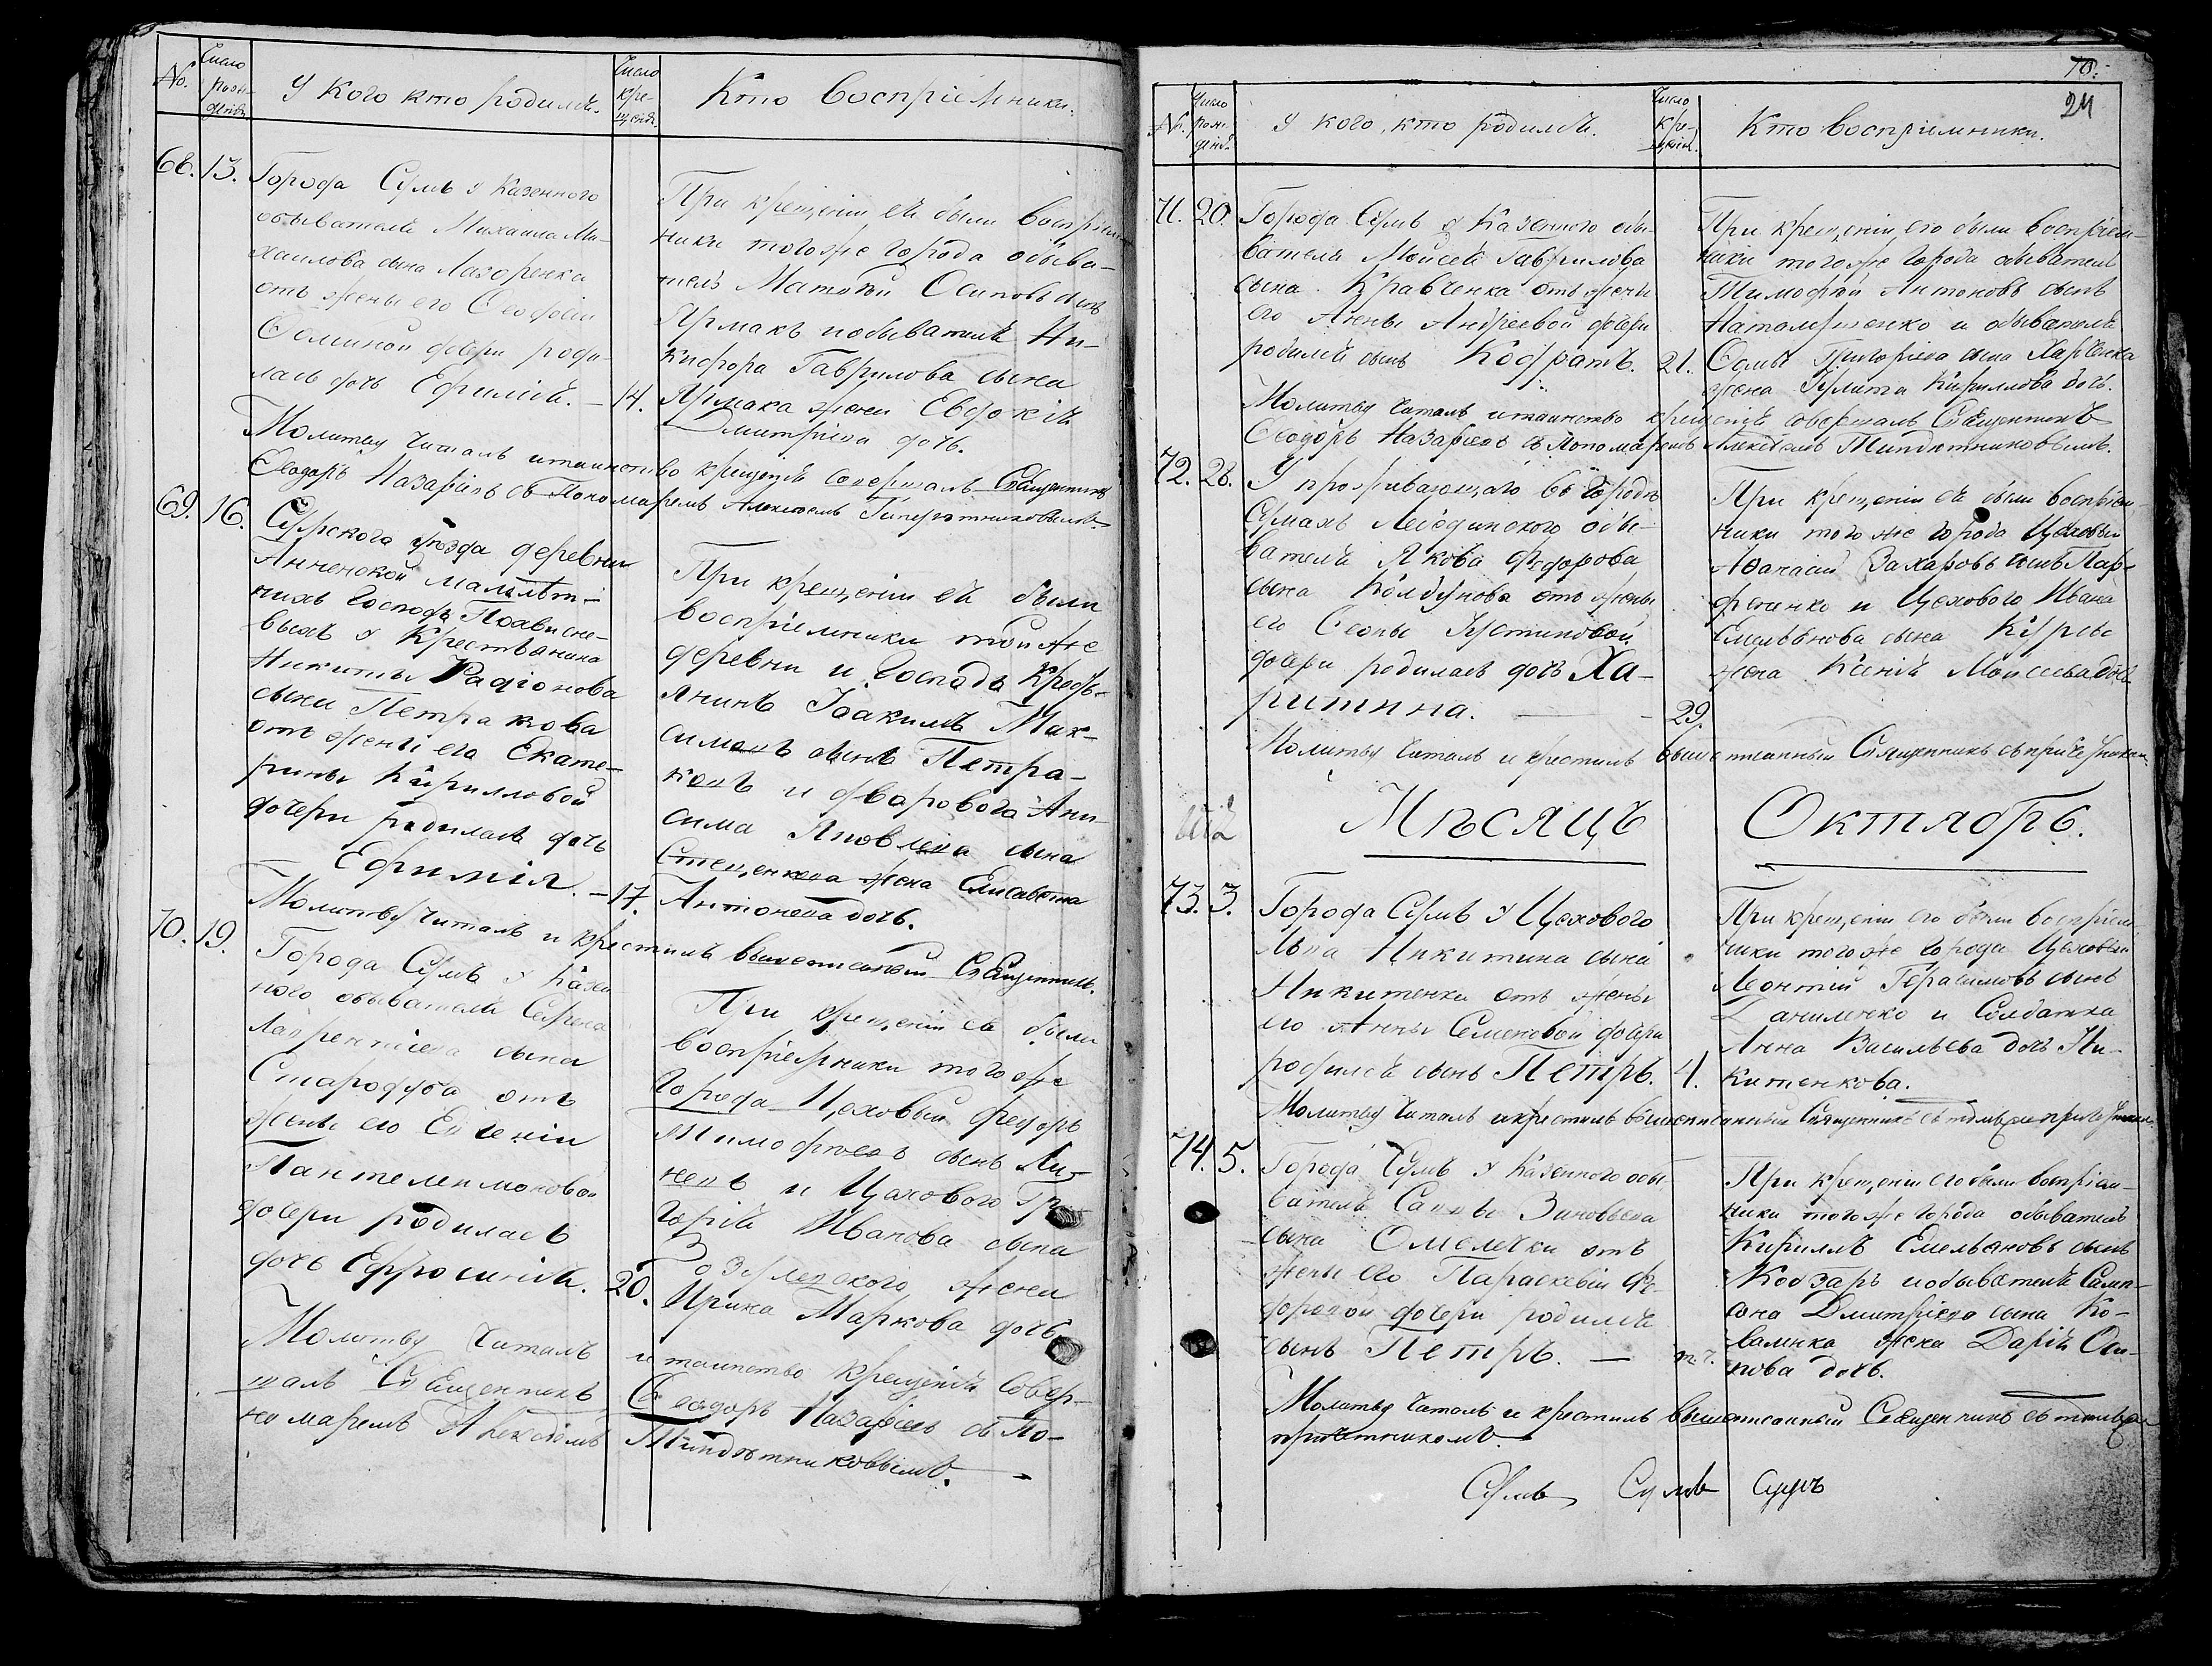 No.
Число рожденія
У Кого кто родился.
Число крещенія
Кто Восприемники.
68. 13.
Города Сумъ у Казенного
обывателя Михаила Ми-
хайлова сына Лазоренка
отъ жены его Феодосіи
Фоминой дочери роди-
лась дочь Ефимія. — 14.
При крещеніи ея были Воспріем-
ники тогоже города обыва-
тель Матвѣй Осиповъ сынъ
Ярмакъ и обывателя Ни-
кифора Гаврилова сына
Ярмака жена Евдокія
Дмитріева дочь.
Молитву читалъ и таинство крещенія совершалъ Священникъ
Феодоръ Назаріевъ съ Пономаремъ Алексѣемъ
69. 16.
Сумского уѣзда деревни
Анненской малолѣт-
нихъ Господъ
выхъ у Крестьянина
Никиты Радіонова
сына Петракова
отъ жены его Екате-
рины Кирилловой
дочери родилась дочь
Ефимія. — 17.
При крещеніи ея были
воспріемники той же
деревни и Господъ Кресть-
янинъ Іоакимъ Мак-
симовъ сынъ Петра-
ковъ и дворового Ани-
сима Яковлева сына
Стеценкова жена Елисавета
Антонова дочь.
Молитву читалъ и крестилъ вышеписанный Священникъ.
70. 19.
Города Сумъ у Казен-
ного обывателя
Лаврентіева сына
Стародуба отъ
жены его Евгеніи
Пантелеимоновой
дочери родилась
дочь Ефросинія. 20.
При крещеніи ея были
воспріемники тогоже
города Цеховый Федоръ
Тимофѣевъ сынъ
и Цехового Гри-
горія Иванова сына
жена
Ирина Маркова дочь
Молитву читалъ и таинство крещенія совер-
шалъ Священникъ Феодоръ Назаріевъ съ По-
номаремъ Алексѣемъ
70.
24
No.
Число рожденія
У кого, кто родился.
Число крещенія
Кто Восприемники.
71. 20.
Города Сумъ у Казенного обы-
вателя Моисея Гаврилова
сына Кравченка отъ жены
его Анны Андреевой дочери
родился сынъ Кодратъ. 21.
При крещеніи его были воспріем-
ники тогоже города обыватель
Тимофей Антоновъ сынъ
и обывателя
Фомы Григоріева сына Харченка
жена Улита Кириллова дочь.
Молитву читалъ и таинство крещенія совершалъ Священникъ
Феодоръ Назаріевъ съ Пономаремъ Алексѣемъ
72. 28.
У проживающаго въ городѣ
Сумахъ Лебединского обы-
вателя Якова Федорова
сына Колдунова отъ жены
его Феклы Устиновой
дочери родилась дочь Ха-
ритина. — 29.
При крещеніи ея были воспріем-
ники того же города Цеховый
Афанасій Захаровъ сынъ Пар-
фененко и Цехового Ивана
Емельянова сына
жена Ксенія Моисеева дочь
Молитву читалъ и крестилъ вышеписанный Священникъ съ причетникомъ
Мѣсяцъ Октябрь.
73. 3.
Города Сумъ у Цехового
Льва Никитина сына
Никитенки отъ жены
его Анны Семеновой дочери
родился сынъ Петръ. 4.
При крещеніи его были воспріем-
ники тогоже города Цеховый
Леонтій Герасимовъ сынъ
Даниленко и Солдатка
Анна Васильева дочь Ни-
китенкова.
Молитву читалъ и крестилъ вышеписанный Священникъ съ темъже причетникомъ
74. 5.
Города Сумъ у Казенного обы-
вателя Саввы Зиновьева
сына Омелечки отъ
жены его Параскевіи Фе-
доровой дочери родился
сынъ Петръ. — 7.
При крещеніи его были воспріем-
ники тогоже города обыватель
Кириллъ Емельяновъ сынъ
Кобзарь и обывателя Самп-
сона Дмитріева сына Ко-
валенка жена Дарія Оси-
пова дочь.
Молитву читалъ и крестилъ вышеписанный Священникъ съ темъже
причетникомъ.
Сумъ Сумъ Сумъ